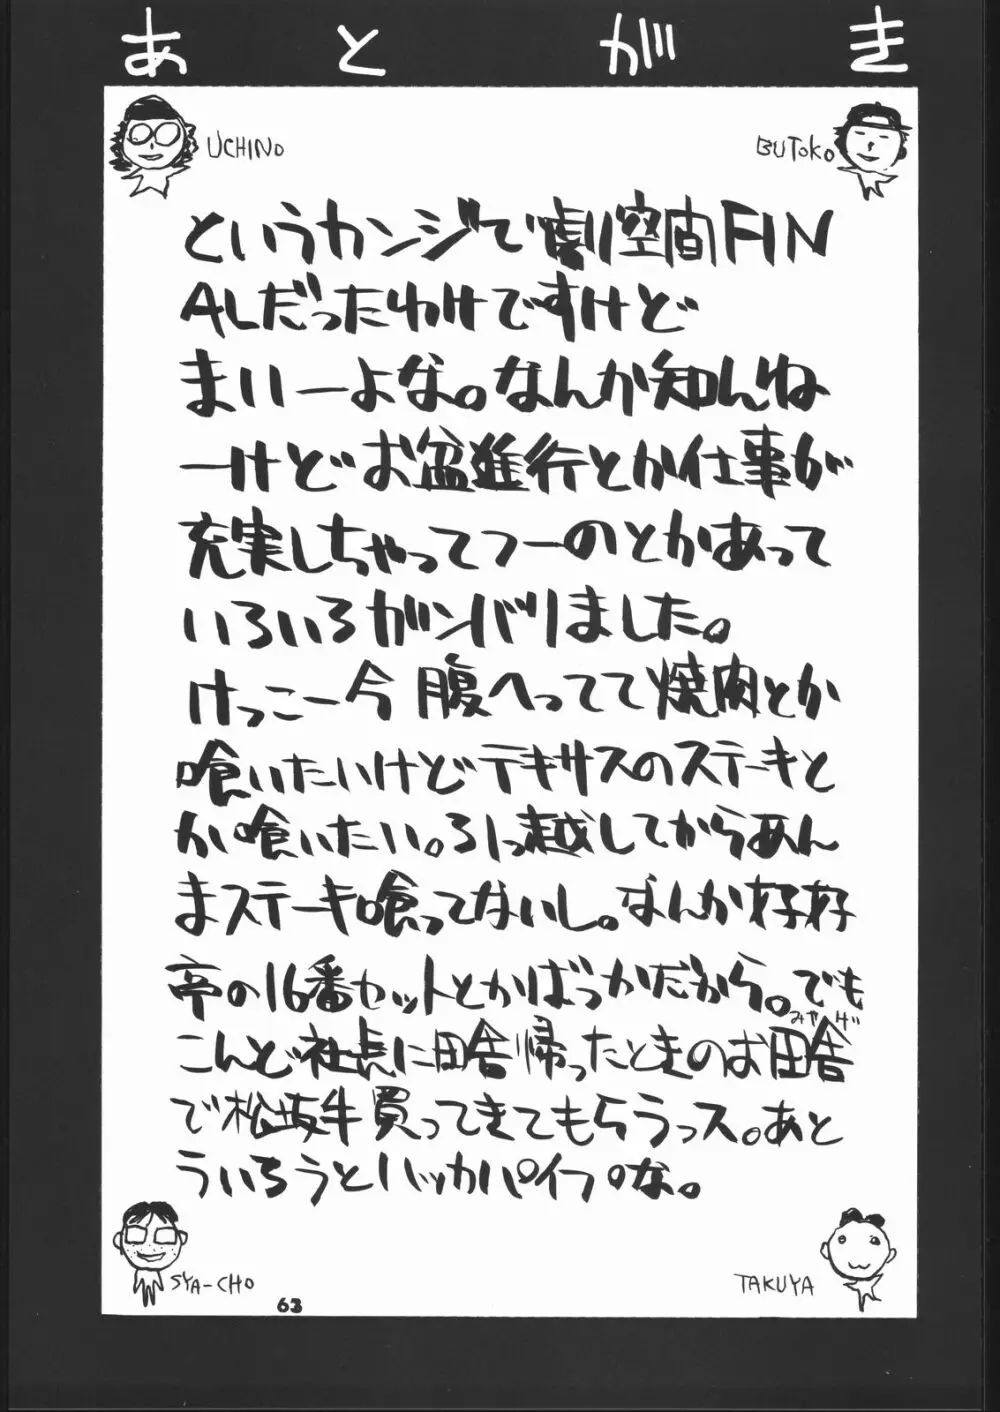 あとがき
UCHINO
BUTOKO
というカンジで劇空間FIN
ALだったわけですけど
まいーよな。なんか知んね
ーけどお盆進行とか仕事が
充実しちゃってつーのとかあって
いろいろガンバりました。
けっこー今腹へってて焼肉とか
喰いたいけどテキサスのステーキと
か喰いたい。引っ越してからあん
まステーキ喰ってないし。なんか好好
亭の16番セットとかばっかだから。でも
こんど社長に田舎帰ったときのお田舎
みやげ
で松坂牛買ってきてもらうっス。あと
ういろうとハッカパイプな。
SYA-CHO
TAKUYA
63